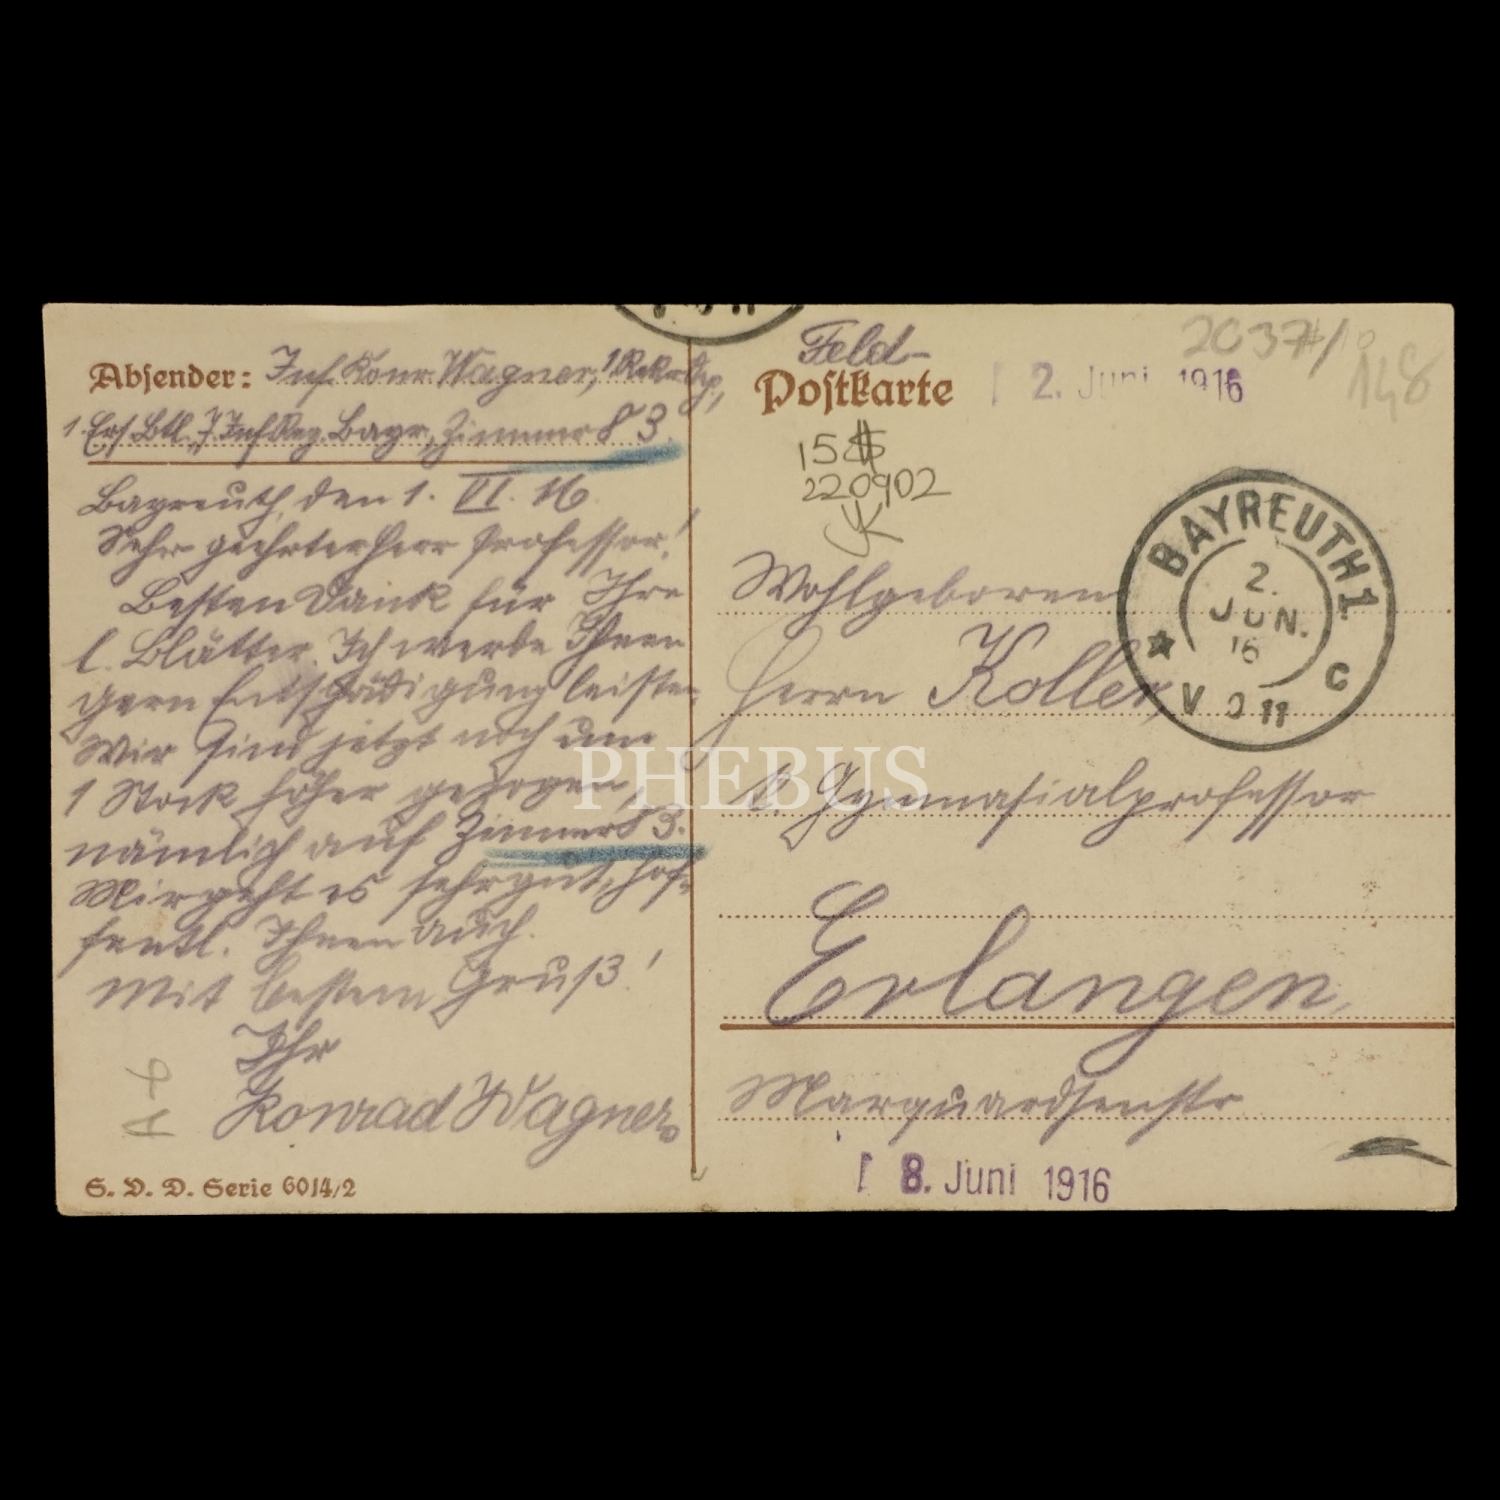 Absender: Inf. Konr. Wagner, 1 Rekr. Dep,
1. Ers. Btl. 7. Inf. Reg. Bayr., Zimmer 83.
Bayreuth, den 1. VI. 16
Sehr geehrter Herr Professor!
Besten Dank für Ihre
l. Blätter. Ich werde Ihnen
gern Entschädigung leisten.
Wir sind jetzt noch um
1 Stock höher gezogen,
nämlich auf Zimmer 83.
Mir geht es sehr gut, hof-
fentl. Ihnen auch.
Mit bestem Gruß!
Ihr
Konrad Wagner
S. V. D. Serie 6014/2
Feld-
Postkarte
2. Juni 1916
2037#/
148
15$
220902
BAYREUTH 1
2.
JUN.
16
V 9 11
C
Wohlgeboren
Herrn Koller,
k. Gymnasialprofessor
Erlangen,
Marquardsenstr
8. Juni 1916
PHEBUS